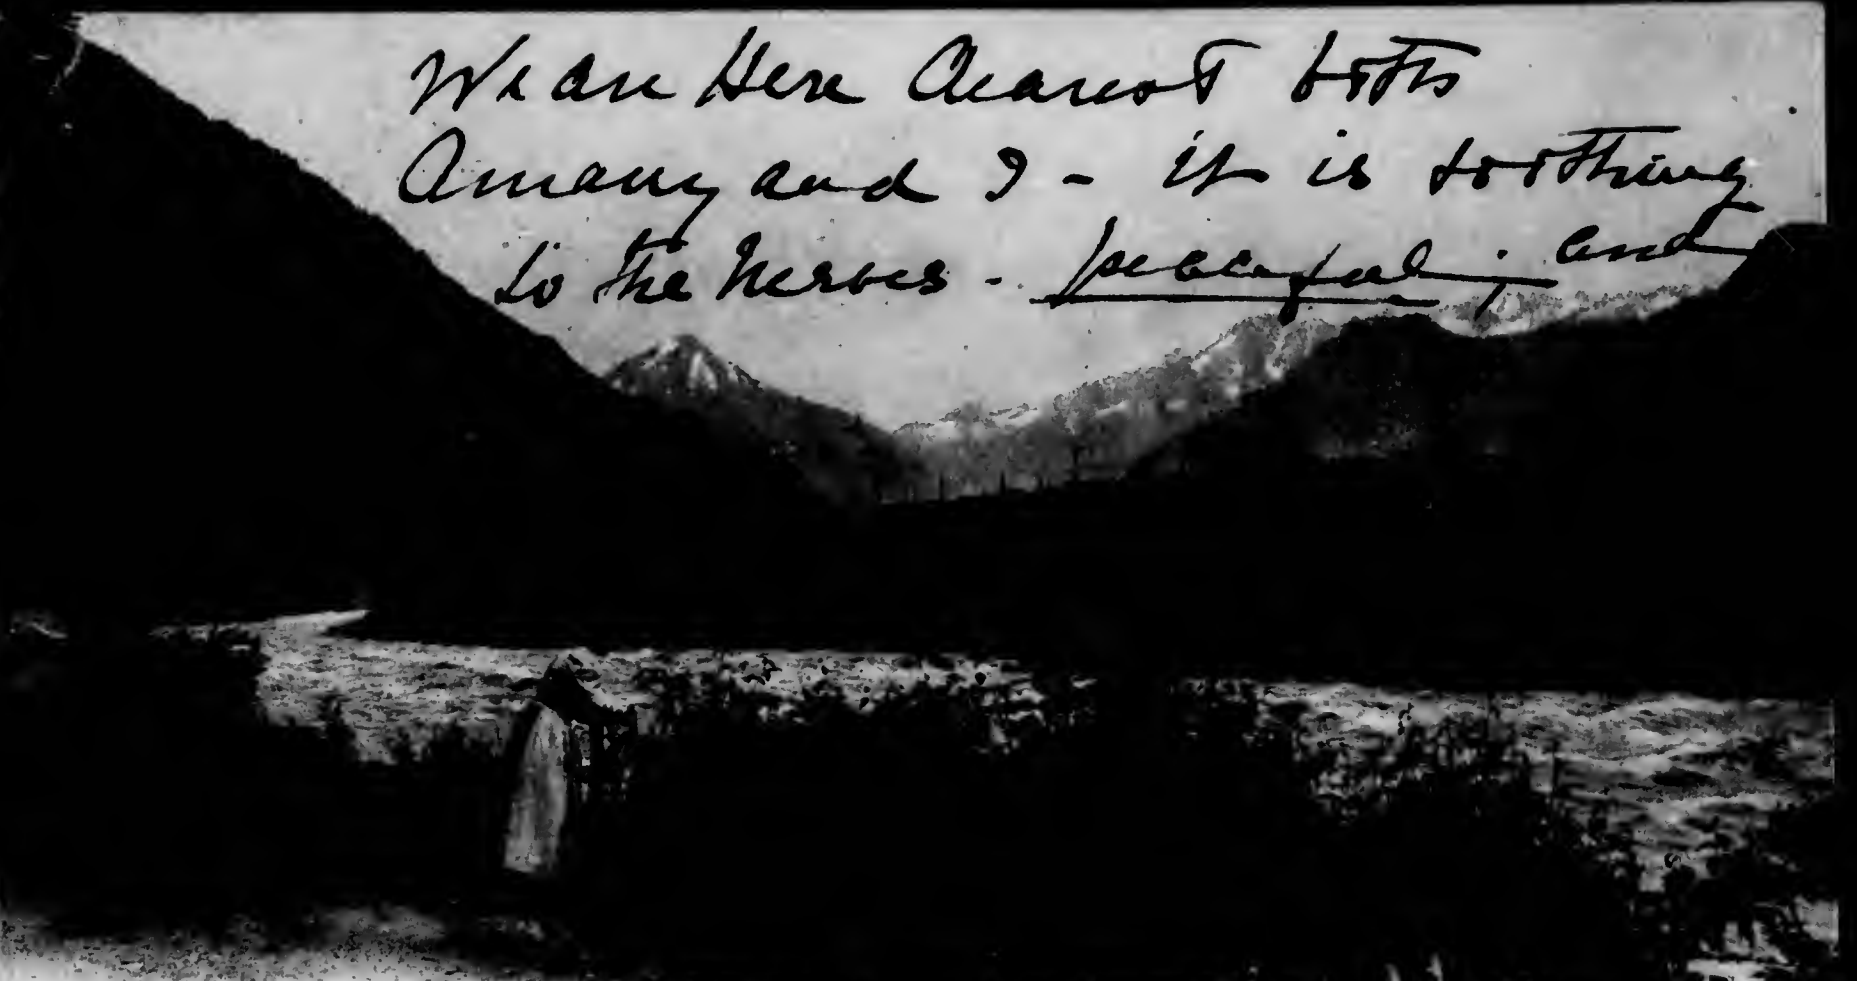 We are Here Dearest both
Amany and I - it is soothing
to the Nerves - peaceful, and